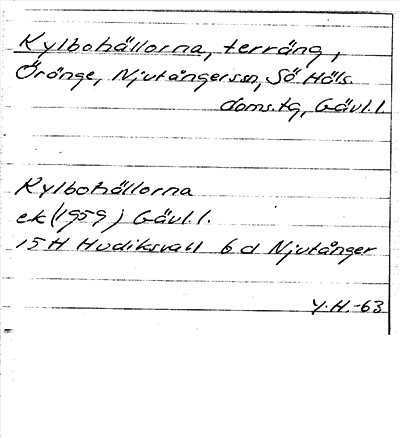 Kylbohällorna, terräng,
Öränge, Njutångers sn, Sö Häls.
doms.tg, Gävl.l.
Kylbohällorna
ek (1959) Gävl.l.
15H Hudiksvall 6d Njutånger
Y.H.-63